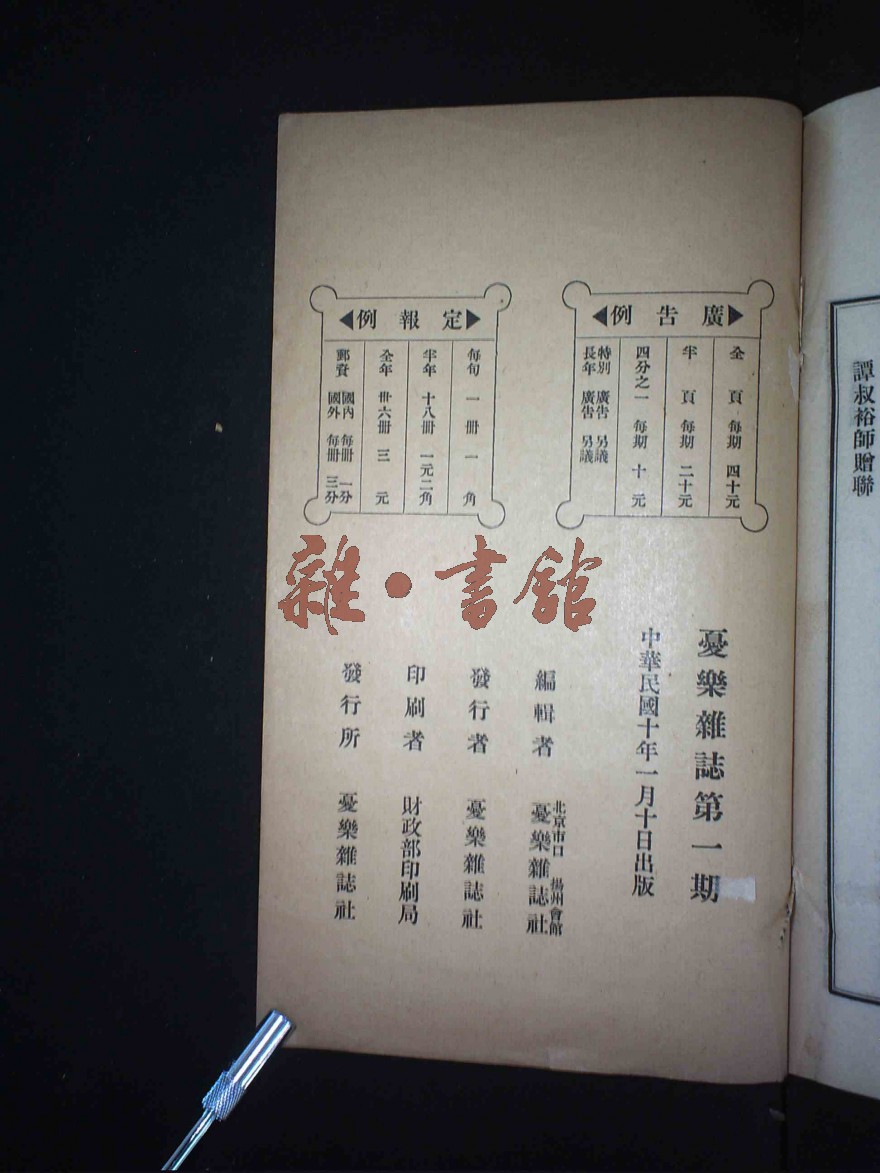 譚叔裕師贈聯
廣告例
全頁 每期 四十元
半頁 每期 二十元
四分之一 每期 十元
特別廣告另議
長年廣告另議
定報例
每旬 一冊 一角
半年 十八冊 一元二角
全年 卅六冊 三元
郵資 國內 每冊 一分
國外 每冊 三分
憂樂雜誌第一期
中華民國十年一月十日出版
編輯者 北京市口 揚州會館
憂樂雜誌社
發行者 憂樂雜誌社
印刷者 財政部印刷局
發行所 憂樂雜誌社
雜·書館